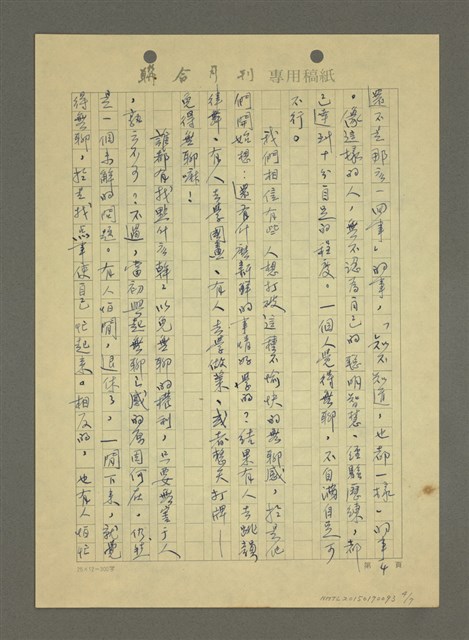 聯合月刊 專用稿紙
還不是那么一回事」的事,「知不知道,也都一樣」的事
4
。像這樣的人,無不認為自己的聰明智慧、經驗歷練,都
已達到十分自足的程度。一個人覺得無聊,不自滿自足可
不行。
我們相信有些人想打破這種不愉快的無聊感,於是他
們開始想:還有什麼新鮮的事情好學的?結果有人去跳韻
律舞、有人去學國畫、有人去學做菜、或者整天打牌—
免得無聊嘛!
誰都有找點什么幹,以免無聊的權利,只要無害于人
,誰云不可?不過,當初興起無聊之感的原因何在,仍然
是一個未解的問題。有人怕閒,退休了,一閒下來,就覺
得無聊,於是找点事使自己忙起來。相反的,也有人怕忙
25×12=300字
第 頁
NMTL20150190293 4/7